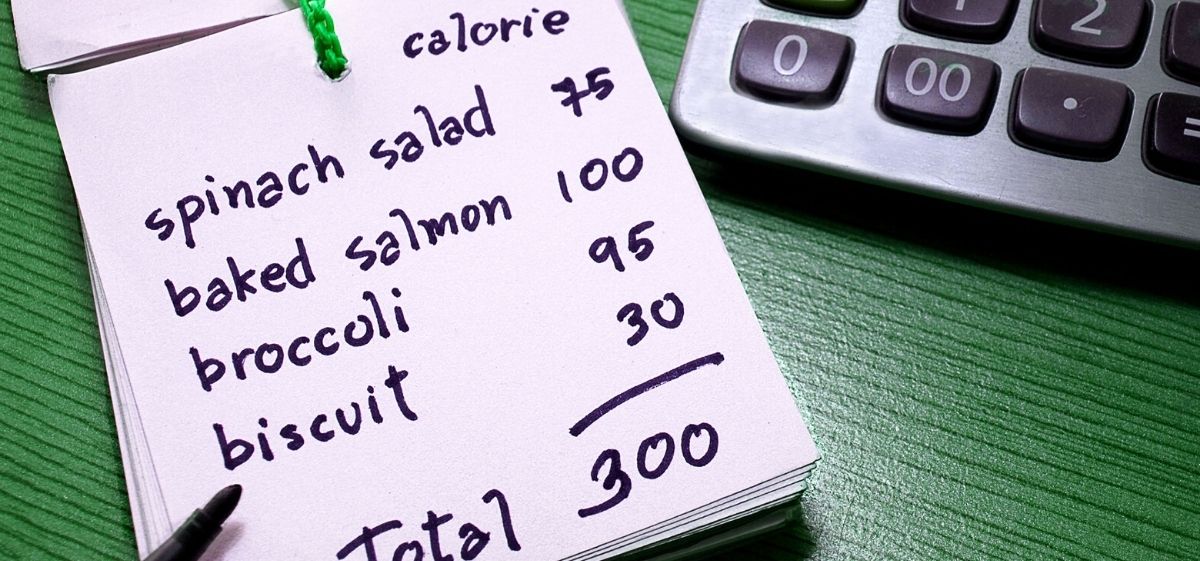 calorie
spinach salad 75
baked salmon 100
broccoli 95
biscuit 30
Total 300
1 2
0 00 .
=